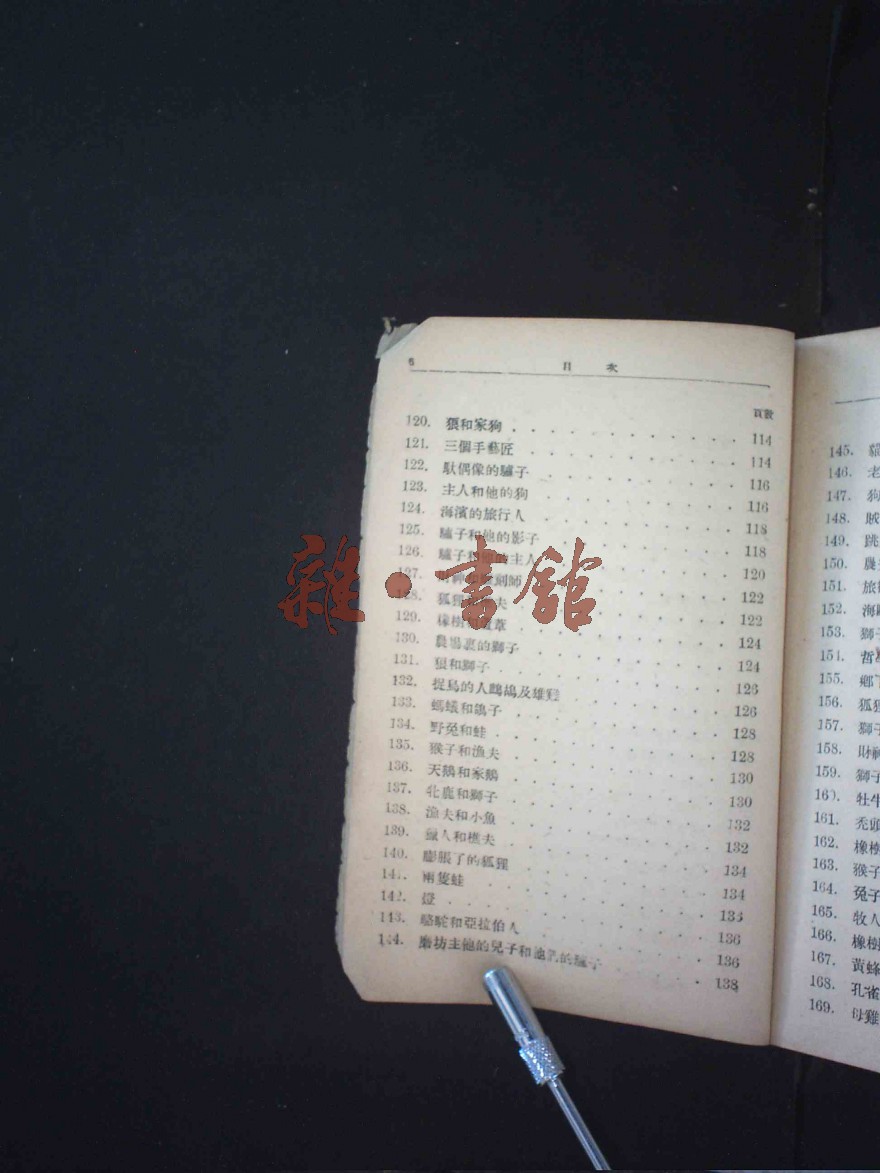 6
目 次
頁數
120. 狼和家狗 114
121. 三個手藝匠 114
122. 馱偶像的驢子 116
123. 主人和他的狗 116
124. 海濱的旅行人 118
125. 驢子和他的影子 118
126. 驢子和 主人 120
127. 刻師 122
128. 狐狸 夫 122
129. 橡樹 葦 124
130. 農場裏的獅子 124
131. 狼和獅子 126
132. 捉鳥的人鷓鴣及雄雞 126
133. 螞蟻和鴿子 128
134. 野兔和蛙 128
135. 猴子和漁夫 130
136. 天鵝和家鵝 130
137. 牝鹿和獅子 132
138. 漁夫和小魚 132
139. 獵人和樵夫 134
140. 膨脹了的狐狸 134
141. 兩隻蛙 136
142. 燈 136
143. 駱駝和亞拉伯人 136
144. 磨坊主他的兒子和 的驢子 138
雜·書館
145.
146. 老
147. 狗
148. 賊
149. 跳
150. 農
151. 旅
152. 海
153. 獅子
154. 哲
155. 鄉下
156. 狐狸
157. 獅子
158. 財神
159. 獅子
160. 牡牛
161. 禿頭
162. 橡樹
163. 猴子
164. 兔子
165. 牧人
166. 橡樹
167. 黃蜂
168. 孔雀
169. 母雞